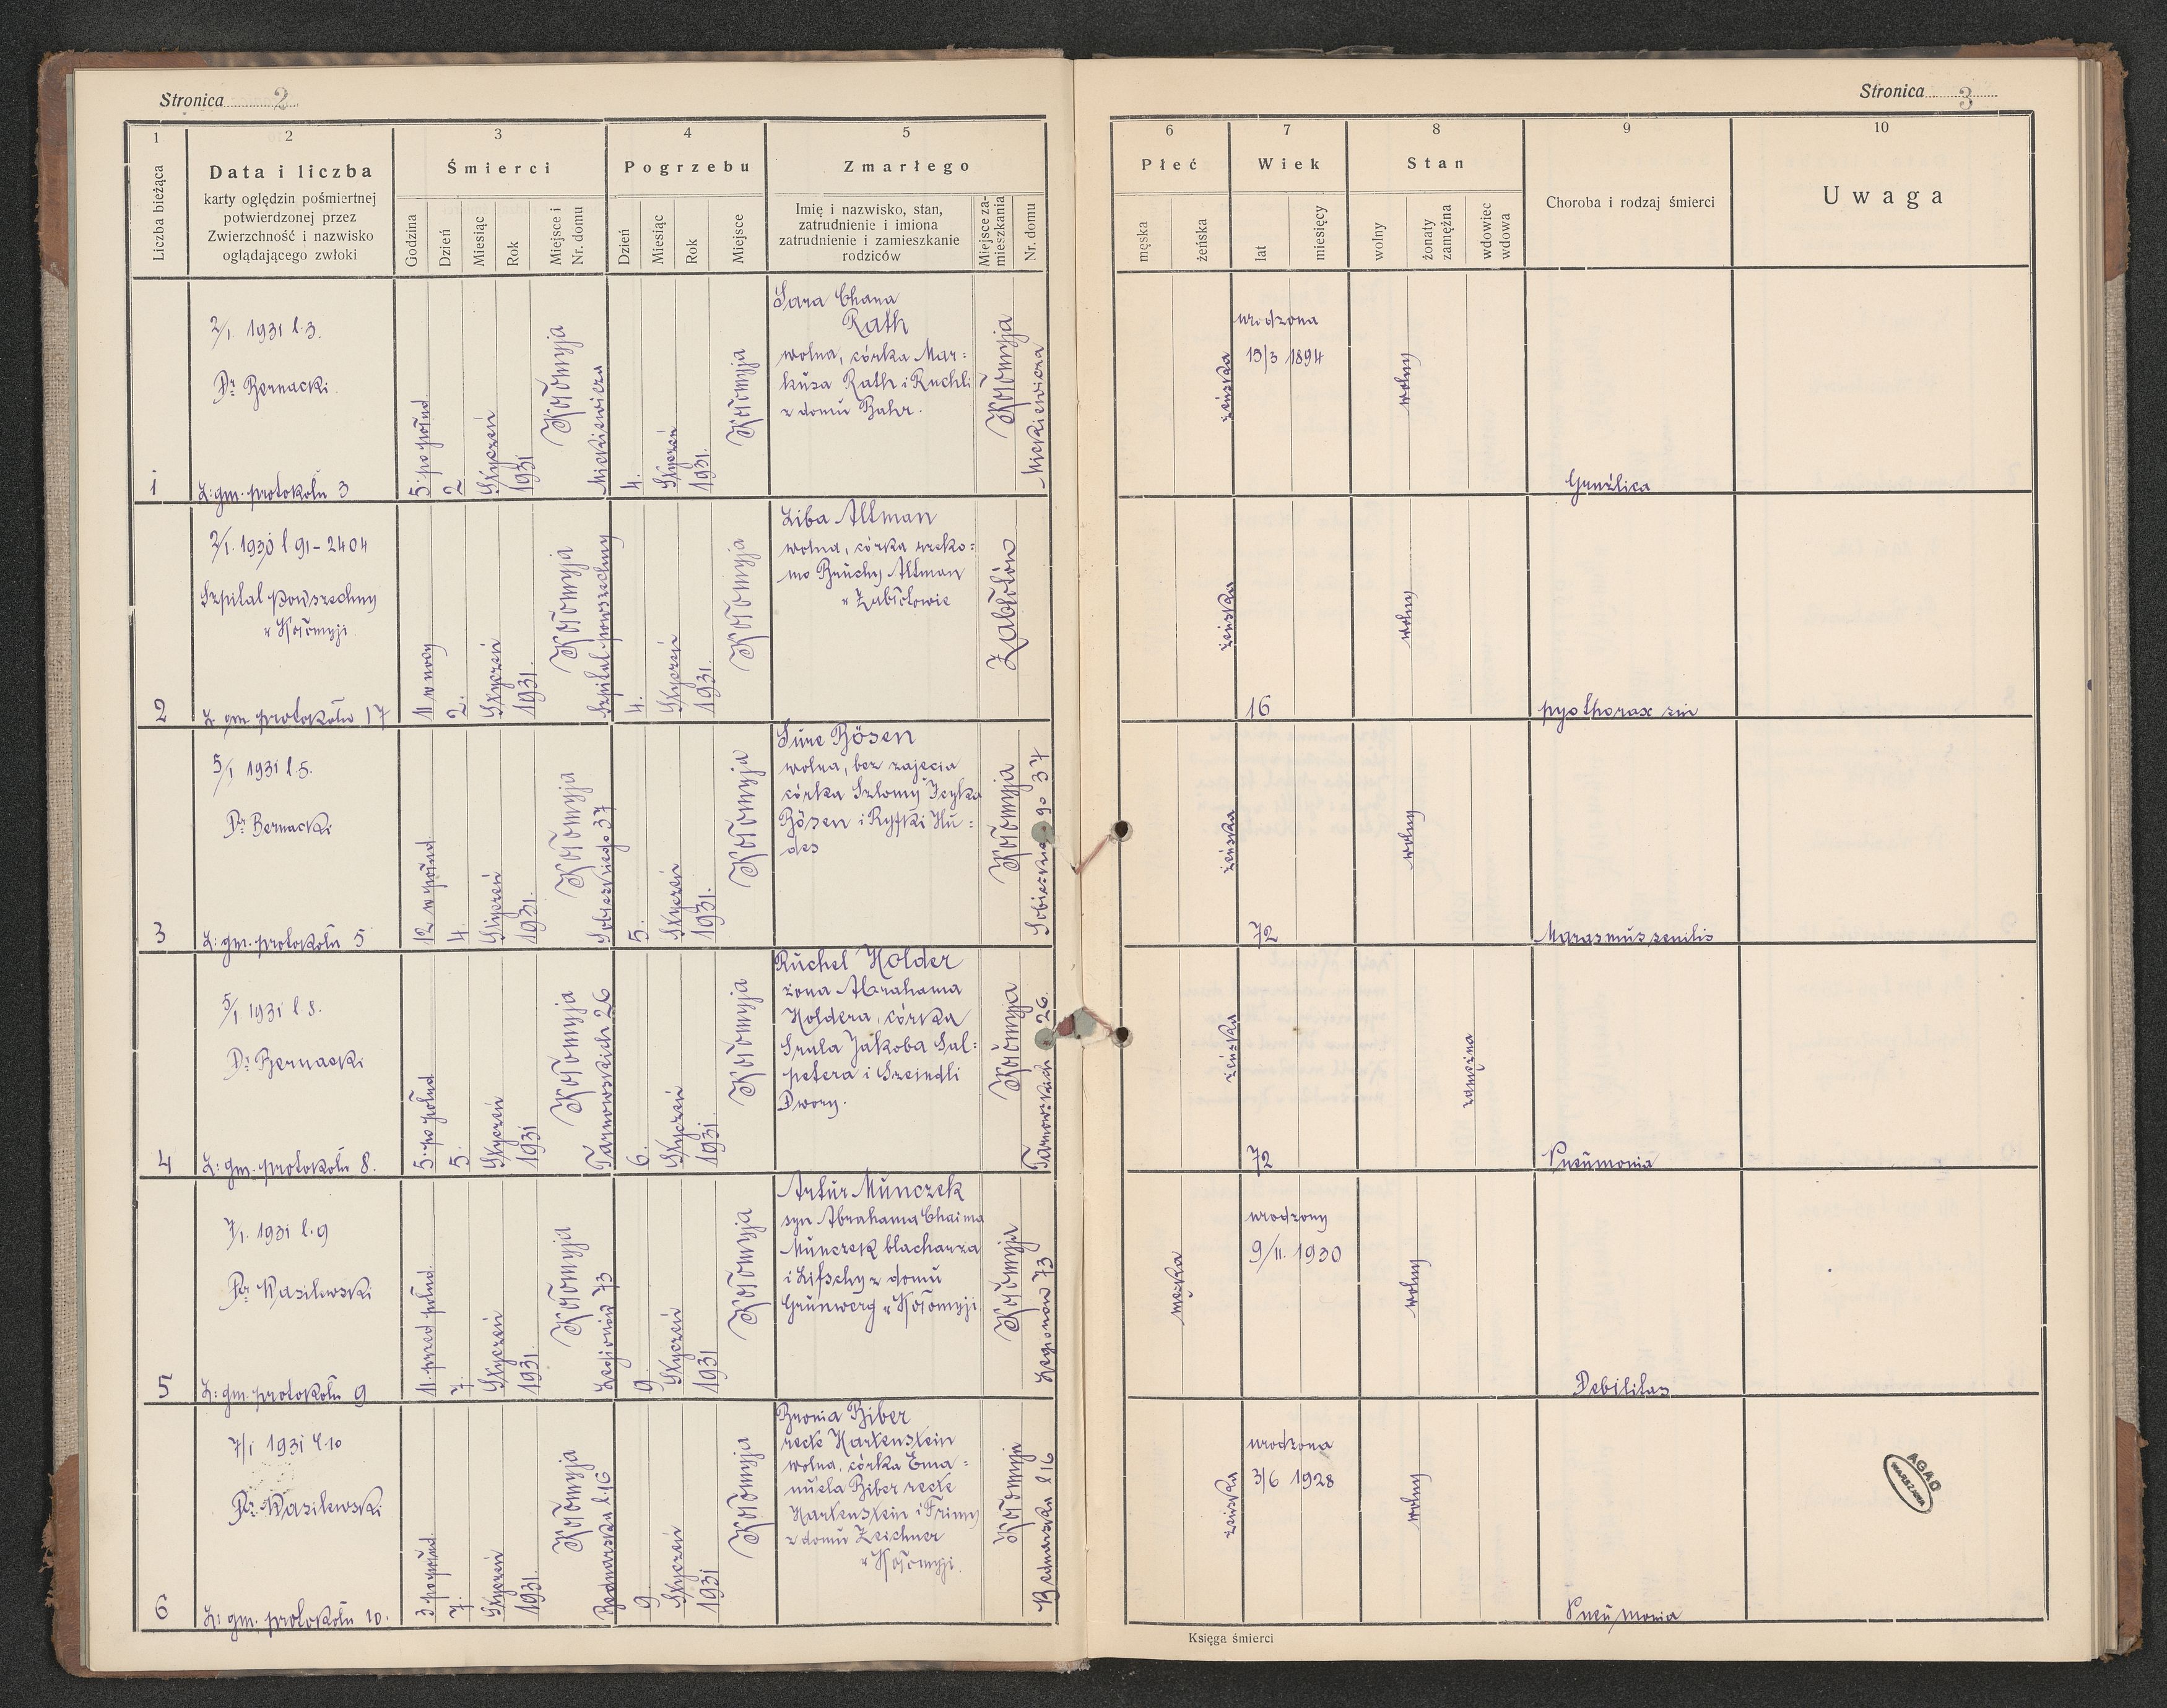 Stronica 2
1
2
3
4
5
Liczba bieżąca
Data i liczba
karty oględzin pośmiertnej
potwierdzonej przez
Zwierzchność i nazwisko
oglądającego zwłoki
Śmierci
Godzina
Dzień
Miesiąc
Rok
Miejsce i
Nr. domu
Pogrzebu
Dzień
Miesiąc
Rok
Miejsce
Zmarłego
Imię i nazwisko, stan,
zatrudnienie i imiona
zatrudnienie i zamieszkanie
rodziców
Miejsce za-
mieszkania
Nr. domu
1
2/I. 1931 l.3.
Dr Bernacki.
L: gm. protokołu 3
5. po połud.
2
Styczeń
1931
Kołomyja
Mickiewicza
4.
Styczeń
1931.
Kołomyja
Sara Chana
Rath
wolna, córka Mar:
kusa Rath i Ruchli
z domu Bahr.
Kołomyja
Mickiewicza
2
2/I. 1930 l. 91-2404
Szpital Powszechny
w Kołomyji
L. gm. protokołu 17
11 w nocy
2.
Styczeń
1931.
Kołomyja
Szpital powszechny
4.
Styczeń
1931.
Kołomyja
Liba Altman
wolna, córka rzeko:
mo Bruchy Altman
w Zabłotowie
Zabłotów
3
5/I 1931 l.5.
Dr Bernacki
L: gm. protokołu 5
12 w połud.
4.
Styczeń
1931.
Kołomyja
Sobieskiego 37
5.
Styczeń
1931.
Kołomyja
Sure Bösen
wolna, bez zajęcia
córka Szlomy Icyka
Bösen i Ryfki Hu:
des
Kołomyja
Sobieskiego 37
4
5/I 1931 l.8.
Dr Bernacki
L: gm. protokołu 8.
5. po połud
5.
Styczeń
1931
Kołomyja
Tarnowskich 26
6.
Styczeń
1931.
Kołomyja
Ruchel Holder
żona Abrahama
Holdera, córka
Srula Jakoba Sal:
petera i Szeindli
Dwory.
Kołomyja
Tarnowskich 26.
5
7/I. 1931 l.9
Dr Wasilewski
L: gm. protokołu 9
11. przed połud.
7.
Styczeń
1931.
Kołomyja
Legionów 73
9.
Styczeń
1931
Kołomyja
Artur Munczek
syn Abrahama Chaima
Munczek blacharza
i Lifschy z domu
Grünwerg w Kołomyji
Kołomyja
Legionów 73
6
7/I 1931 l.10
Dr Wasilewski
L: gm. protokołu 10.
3 po połud.
7.
Styczeń
1931.
Kołomyja
Bednarska l.16
9.
Styczeń
1931
Kołomyja
Bronia Biber
recte Hartenstein
wolna, córka Ema:
nuela Biber recte
Hartenstein i Frimy
z domu Zeichner
w Kołomyji.
Kołomyja
Bednarska l 16
Stronica 3
6
7
8
9
10
Płeć
męska
żeńska
Wiek
lat
miesięcy
Stan
wolny
żonaty
zamężna
wdowiec
wdowa
Choroba i rodzaj śmierci
Uwaga
żeńska
urodzona
15/3 1894
wolny
Gruźlica
żeńska
16
wolny
pyothorax sin
żeńska
72
wolny
Marasmus senilis
żeńska
72
zamężna
Pneumonia
męska
urodzony
9/II. 1930
wolny
Debilitas
żeńska
urodzona
3/6 1928
wolny
Pneumonia
AGAD
WARSZAWA
Księga śmierci